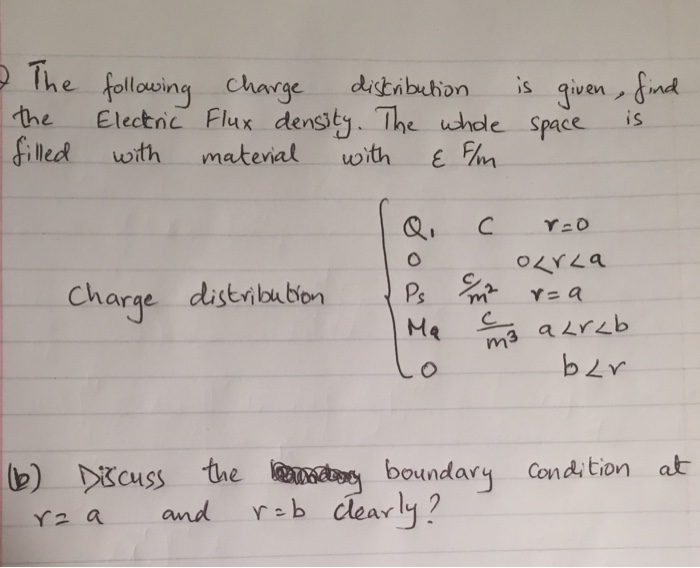 The following charge distribution is given, find
the Electric Flux density. The whole space is
filled with material with ε F/m
Q₁ C r=0
0 0<r<a
Charge distribution Ps C/m² r=a
C/m³ a<r<b
0 b<r
(b) Discuss the boundary condition at
r=a and r=b clearly?